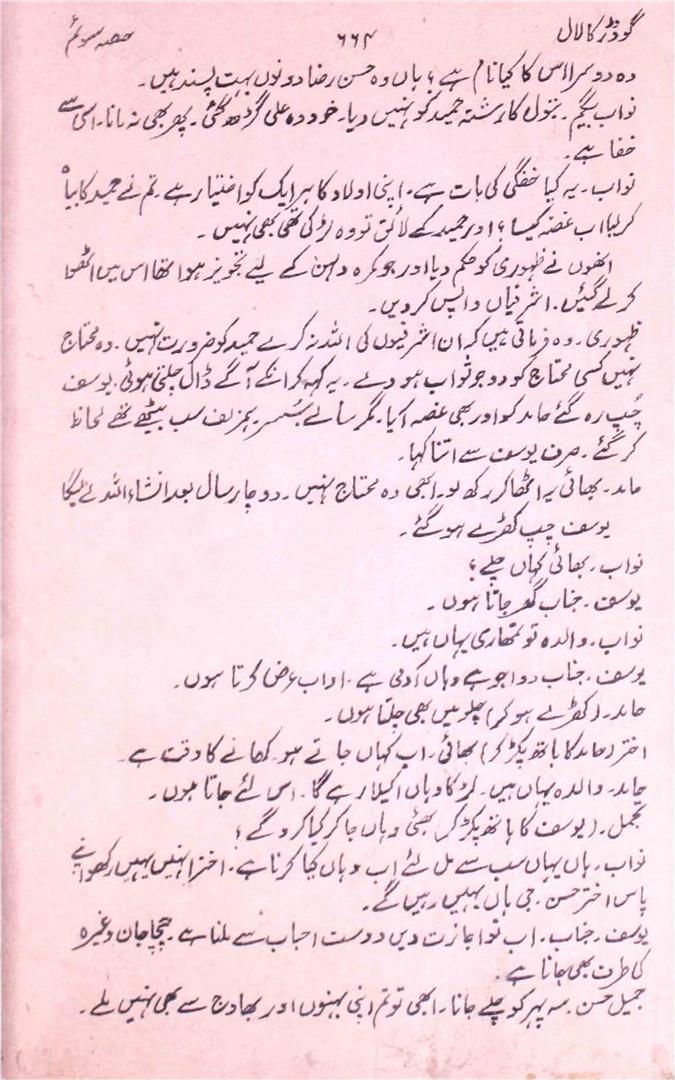 گودڑ کا لال ۶۶۴ حصہ سوئم
وہ دوسرا اس کا کیا نام ہے؟ ہاں وہ حسن رضا دونوں بہت پسند ہیں۔
نواب بیگم۔ بتول کا رشتہ حمید کو نہیں دیا۔ خود وہ علی گڑھ گئی۔ پھر بھی نہ مانا۔ اسی سے
خفا ہے۔
نواب۔ یہ کیا خفگی کی بات ہے۔ اپنی اولاد کا ہر ایک کو اختیار ہے۔ تم نے حمید کا بیاہ
کر لیا اب غصہ کیسا؟ اور حمید کے لائق تو وہ لڑکی تھی بھی نہیں۔
انھوں نے ظہوری کو حکم دیا اور جو کمرہ دلہن کے لیئے تجویز ہوا تھا اس میں اٹھوا
کر لے گئیں۔ اشرفیاں واپس کر دیں۔
ظہوری۔ وہ فرماتی ہیں کہ ان اشرفیوں کی اللہ نہ کرے حمید کو ضرورت نہیں۔ وہ محتاج
نہیں کسی محتاج کو دو جو ثواب ہو دے۔ یہ کہہ کر انکے آگے ڈال چلتی ہوئی۔ یوسف
چُپ رہ گئے حامد کو اور بھی غصہ آیا۔ مگر سالے سُسر ہمزلف سب بیٹھے تھے لحاظ
کر گئے۔ صرف یوسف سے اتنا کہا۔
حامد۔ بھائی یہ اٹھا کر رکھ لو۔ ابھی وہ محتاج نہیں۔ دو چار سال بعد انشاء اللہ لے لیگا
یوسف چپ کھڑے ہو گئے۔
نواب۔ بھائی کہاں چلے؟
یوسف۔ جناب گھر جاتا ہوں۔
نواب۔ والدہ تو تمھاری یہاں ہیں۔
یوسف۔ جناب دوا جو ہے وہاں کونی ہے۔ اداب عرض کرتا ہوں۔
حامد۔ (کھڑے ہو کر) چلو میں بھی چلتا ہوں۔
اختر (حامد کا ہاتھ پکڑ کر) بھائی۔ اب کہاں جاتے ہو۔ کھانے کا وقت ہے۔
حامد۔ والدہ یہاں ہیں۔ لڑکا وہاں اکیلا رہے گا۔ اس لئے جاتا ہوں۔
تجمل۔ (یوسف کا ہاتھ پکڑ کر) بھئی وہاں جا کر کیا کرو گے؟
نواب۔ ہاں یہاں سب سے مل لئے اب وہاں کیا کرنا ہے۔ اختر انہیں یہیں رکھو اپنے
پاس اختر حسن۔ جی ہاں یہیں رہیں گے۔
یوسف۔ جناب۔ اب تو اجازت دیں دوست احباب سے ملنا ہے۔ چچا جان وغیرہ
کی طرف بھی جانا ہے۔
جمیل حسن۔ سہ پہر کو چلے جانا۔ ابھی تو تم اپنی بہنوں اور بھاوج سے بھی نہیں ملے۔